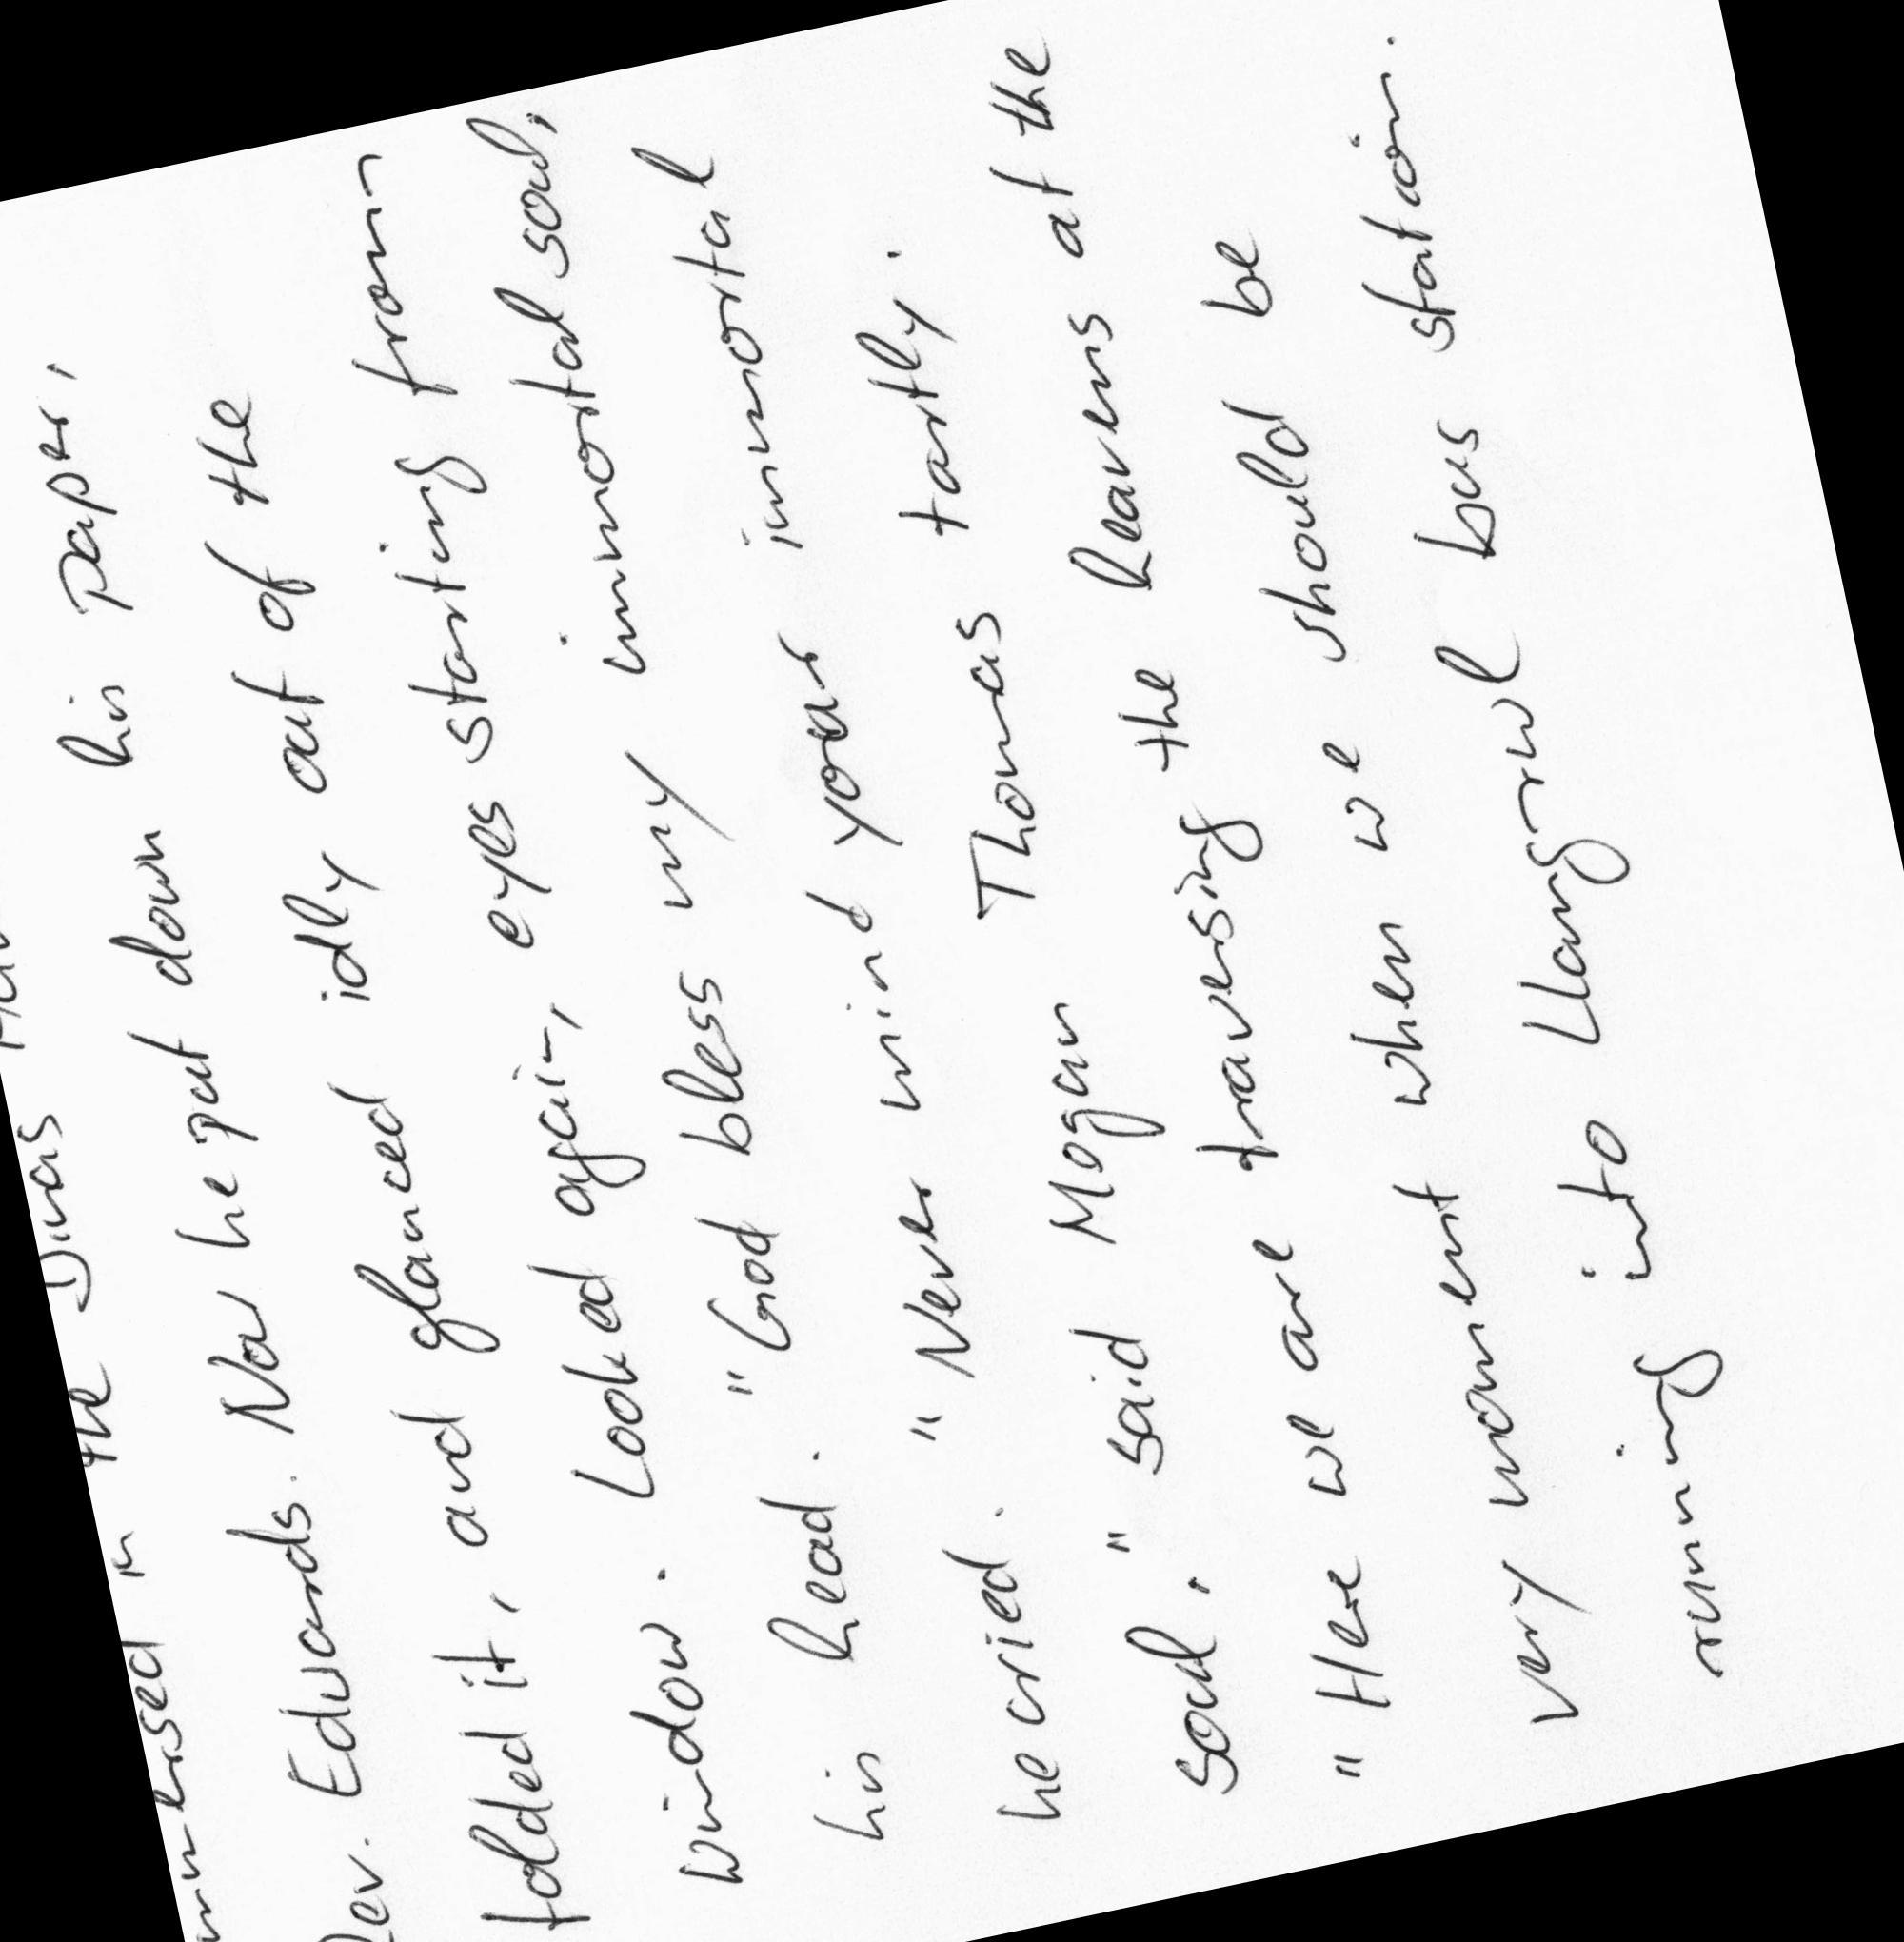 in the Dinas
Rev. Edwards. Now he put down his paper,
folded it, and glanced idly out of the
window. Looked again, eyes starting from
his head. "God bless my immortal soul,"
he cried. "Never mind your immortal
soul," said Mogan Thomas tartly.
"Here we are traversing the heavens at the
very moment when we should be
running into Llangrwl bus station.